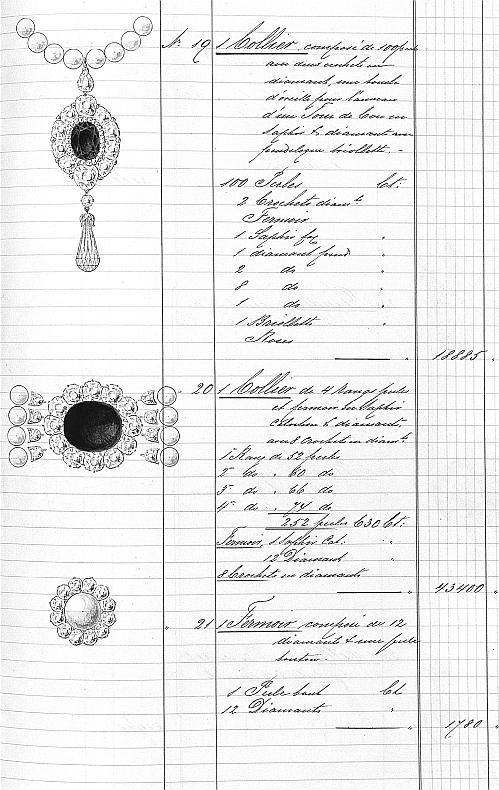 No. 19 1 Collier composé de 100 perles
avec deux crochets en
diamant, une boucle
d'oreille pour l'anneau
d'un Tour de Cou en
Saphir & diamant avec
pendeloque briollette. -
100 Perles Ct:
2 Crochets diamts
Fermoir
1 Saphir "
1 diamant fond "
2 do "
8 do "
1 do "
1 Briollette "
Roses
" 18885 "
" 20 1 Collier de 4 Rangs perles
et fermoir en Saphir
& diamants,
avec 8 crochets en diamts
1 Rang de 52 perles
2e do " 60 do
3e do " 66 do
4e do " 74 do
252 perles 630 Ct:
Fermoir, 1 Saphir Cab. "
12 Diamants "
8 Crochets en diamants
" 43400 "
" 21 1 Fermoir composé de 12
diamants & une perle
bouton.
1 Perle bout Ct
12 Diamants "
" 1780 "